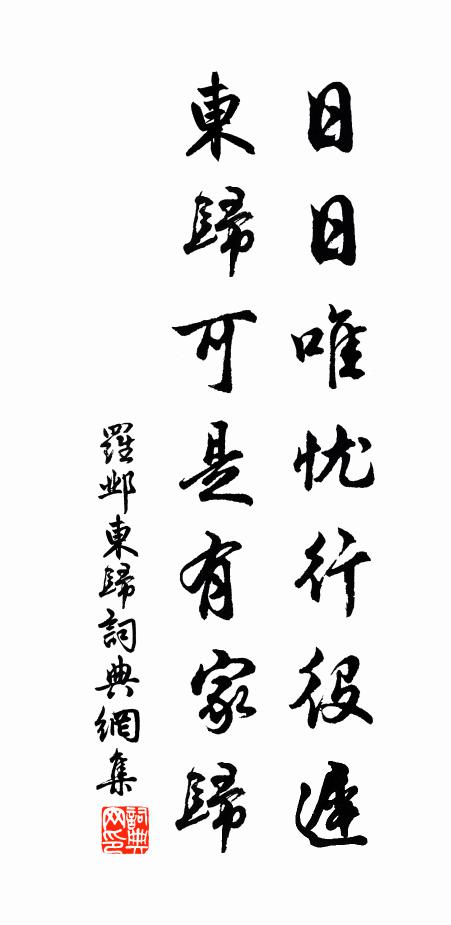 日日唯忧行役遲
東歸可是有家歸
羅鄴東歸詞典網集
詞典
网印